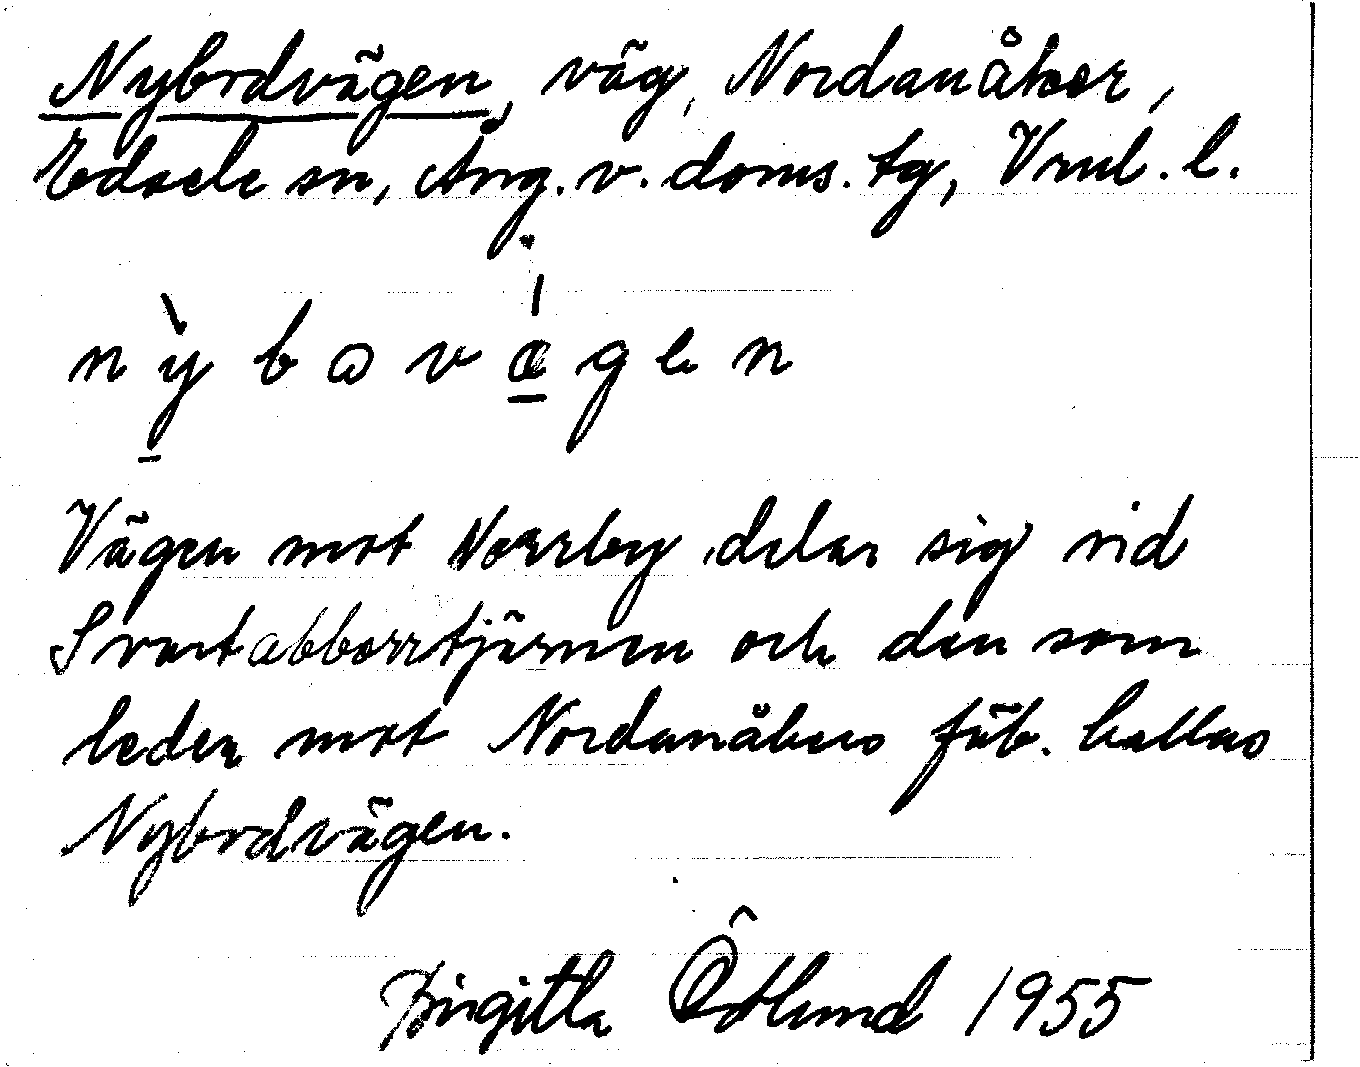 Nybodvägen, väg, Nordanåker,
Edsele sn, Ång. v. doms. tg, Vnl. l.
nỳbovægen
Vägen mot Norrby delar sig vid
Svartabborrtjärnen och den som
leder mot Nordanåkers fäb. kallas
Nybodvägen.
Birgitta Ödlund 1955